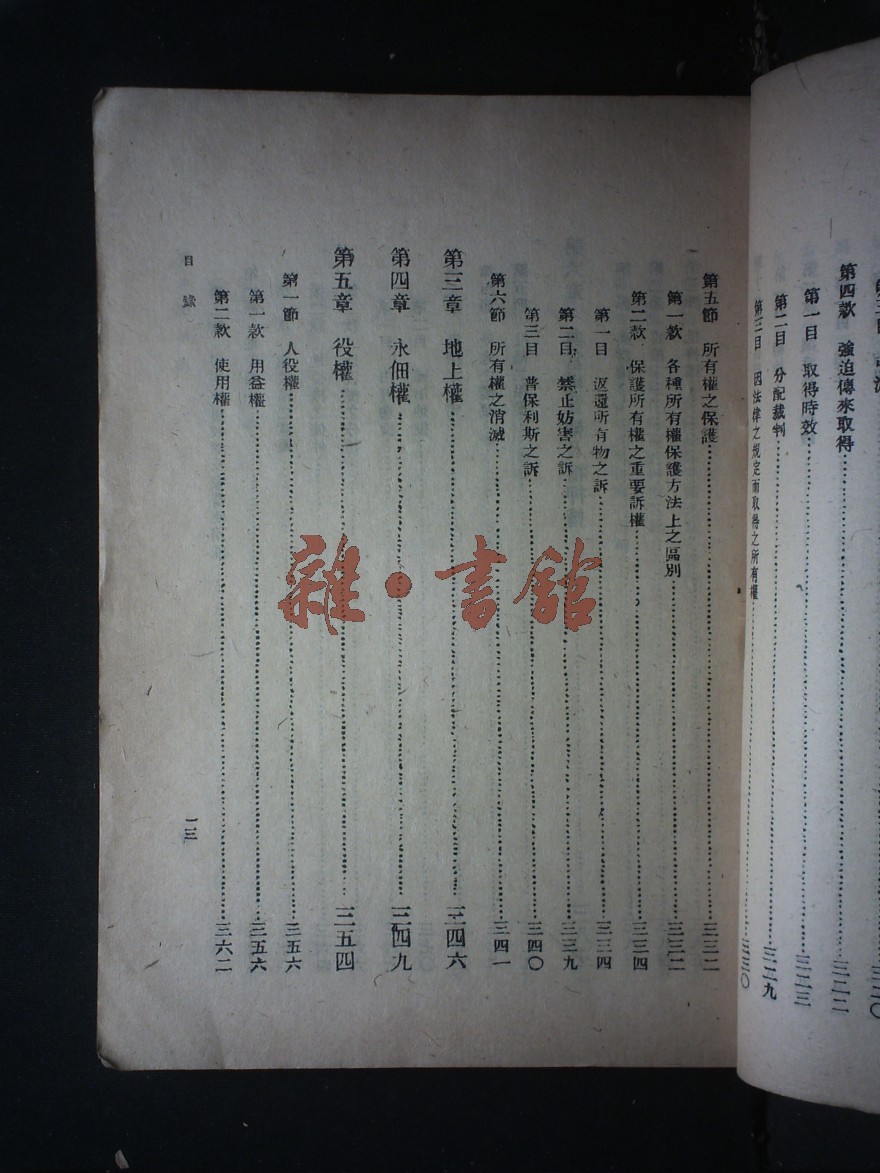 三二〇
第四款 強迫傳來取得……三二二
第一目 取得時效……三二三
第二目 分配裁判……三二九
第三目 因法律之規定而取得之所有權……三三〇
第五節 所有權之保護……三三二
第一款 各種所有權保護方法上之區別……三三二
第二款 保護所有權之重要訴權……三三四
第一目 返還所有物之訴……三三四
第二目 禁止妨害之訴……三三九
第三目 普保利斯之訴……三四〇
第六節 所有權之消滅……三四一
第三章 地上權……三四六
第四章 永佃權……三四九
第五章 役權……三五四
第一節 人役權……三五六
第一款 用益權……三五六
第二款 使用權……三六二
目錄 二三
雜·書館